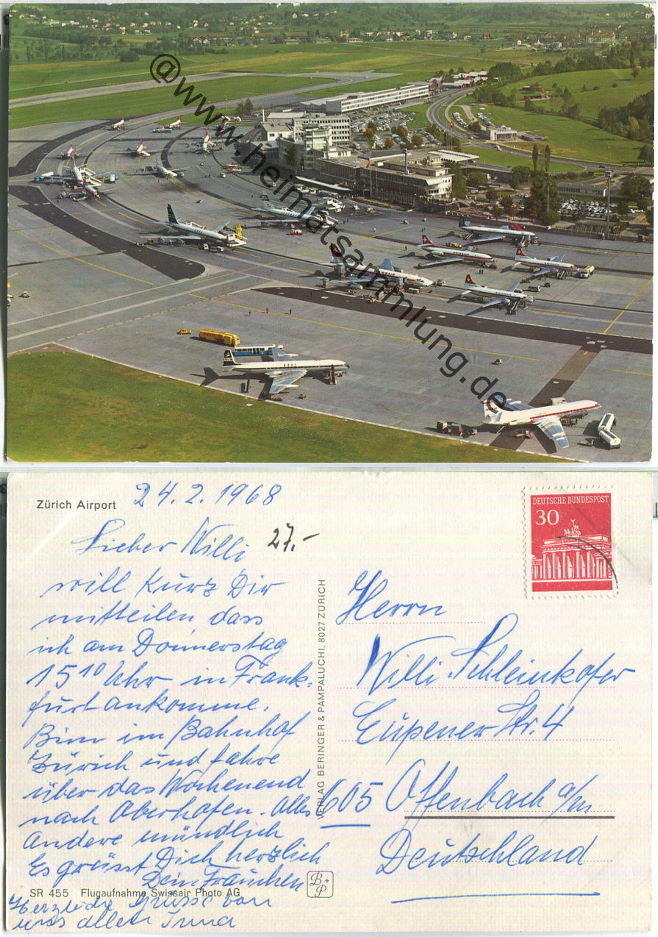 @ www.heimatsammlung.de
Zürich Airport
24.2.1968
Lieber Willi
27.-
will Kurz Dir
mitteilen dass
ich am Donnerstag
15 10 Uhr in Frank-
furt ankomme.
Binn im Bahnhof
Zürich und fahre
über das Wochenend
nach Oberhofen. Alles
Andere mündlich
Es grüsst Dich herzlich
Dein Frauchen
Herzliche Grüsse von
uns allen Irma
SR 455 Flugaufnahme Swissair Photo AG
B+P
VERLAG BERINGER & PAMPALUCHI, 8027 ZÜRICH
DEUTSCHE BUNDESPOST
30
Herrn
Willi Schleinkofer
Eupener Str. 4
605 Offenbach a/m
Deutschland